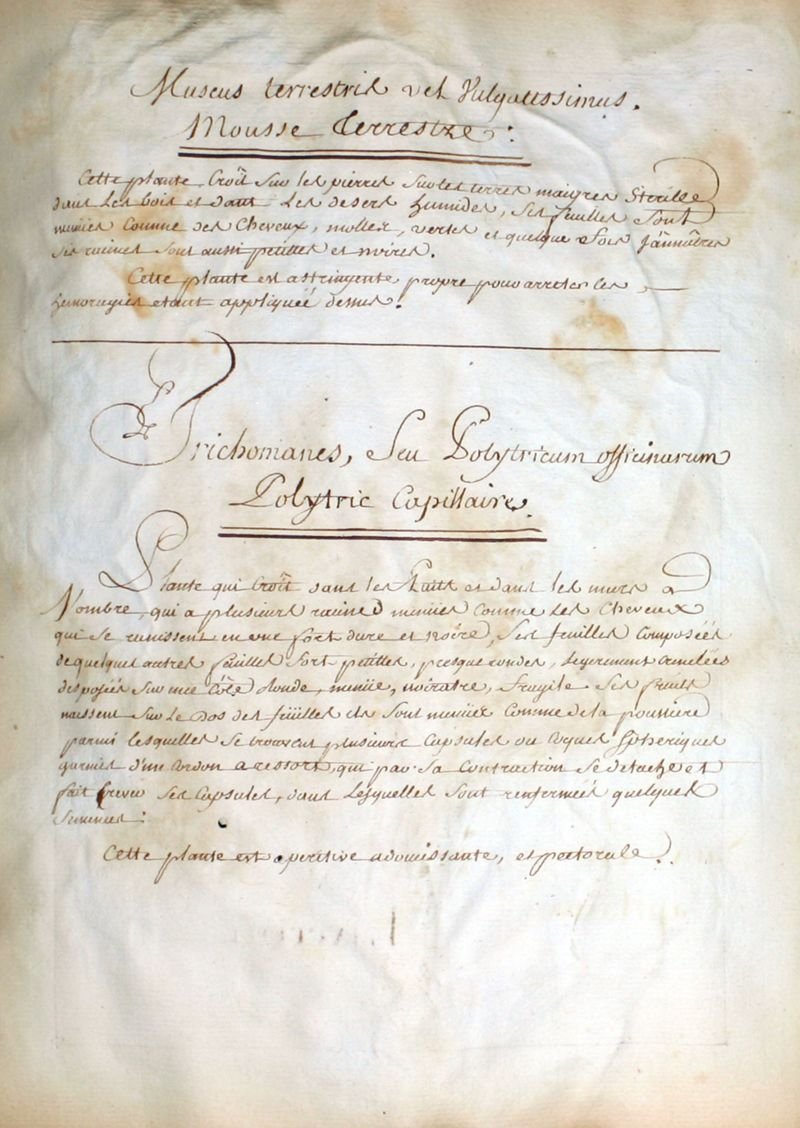 Muscus terrestris vel Vulgatissimus.
Mousse Terrestre:
Cette plante Croît Sur les pierres Sur les terres maigres Sterille
dans Les bois et dans Les desers humides, Ses feuilles Sont
menües Comme des Cheveux, molles, vertes et quelque fois jaunnâtres
Ses racines Sont aussi petittes et noires.
Cette plante est astringente propre pour arreter les
hemoragies etant appliqueé dessus.
Trichomanes, Seu Polytricum officinarum
Polytric Capillaire.
Plante qui Croît dans les Puits et dans les murs a
l'ombre, qui a plusieurs racines menües Comme les Cheveux
qui se reunissent en une fort dure et noire, Ses feuilles Composeés
de quelques autres feuilles fort petittes, presque rondes, legerement crenelées
desposeés Sur une Côte ronde, menüe, noiratre, fragile. Ses fruits
naissent Sur le Dos des feüilles ils Sont menüe Comme de la poussiere
parmi lesquelles Se trouvent plusieurs Capsules ou Spheriques
garnies d'un Cordon a ressort, qui par Sa Contraction Se detache et
fait Crever Ses Capsules, dans Lesquelles Sont renfermeés quelques
Semences:
Cette plante est aperitive adoucissante, et pectorale.